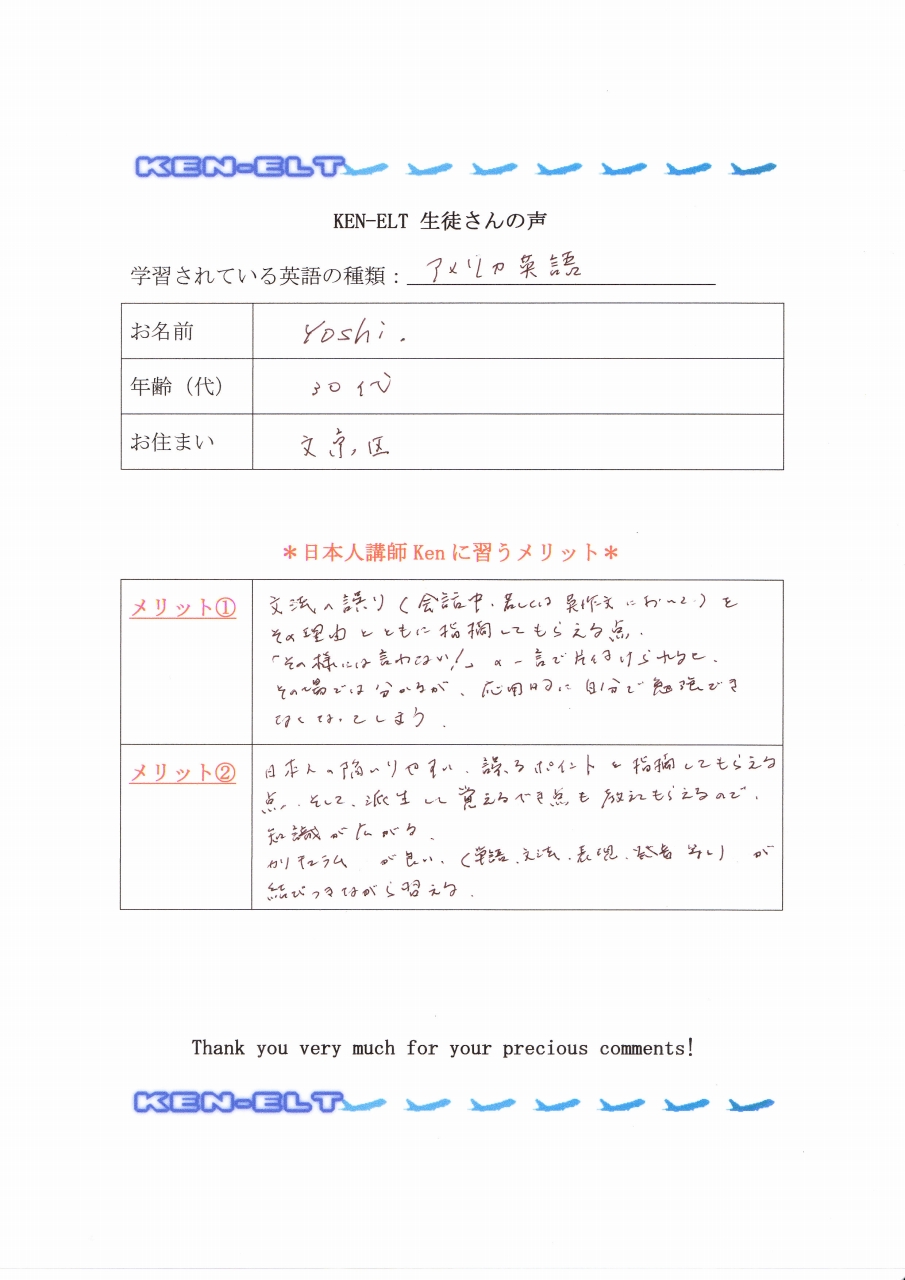 KEN-ELT
KEN-ELT 生徒さんの声
学習されている英語の種類： アメリカ英語
お名前 Yoshi.
年齢（代） 30代
お住まい 文京区
＊日本人講師 Ken に習うメリット＊
メリット①
文法の誤り（会話中、若しくは英作文において）を
その理由とともに指摘してもらえる点.
「その様には言わない!」の一言で片付けられると、
その場では分かるが、応用時に自分で勉強でき
なくなってしまう.
メリット②
日本人の陥いりやすい、誤るポイントを指摘してもらえる
点、そして、派生して覚えるべき点も教えてもらえるので、
知識が広がる.
カリキュラム が良い、（単語、文法、表現、発音 等々）が
結びつきながら習える.
Thank you very much for your precious comments!
KEN-ELT